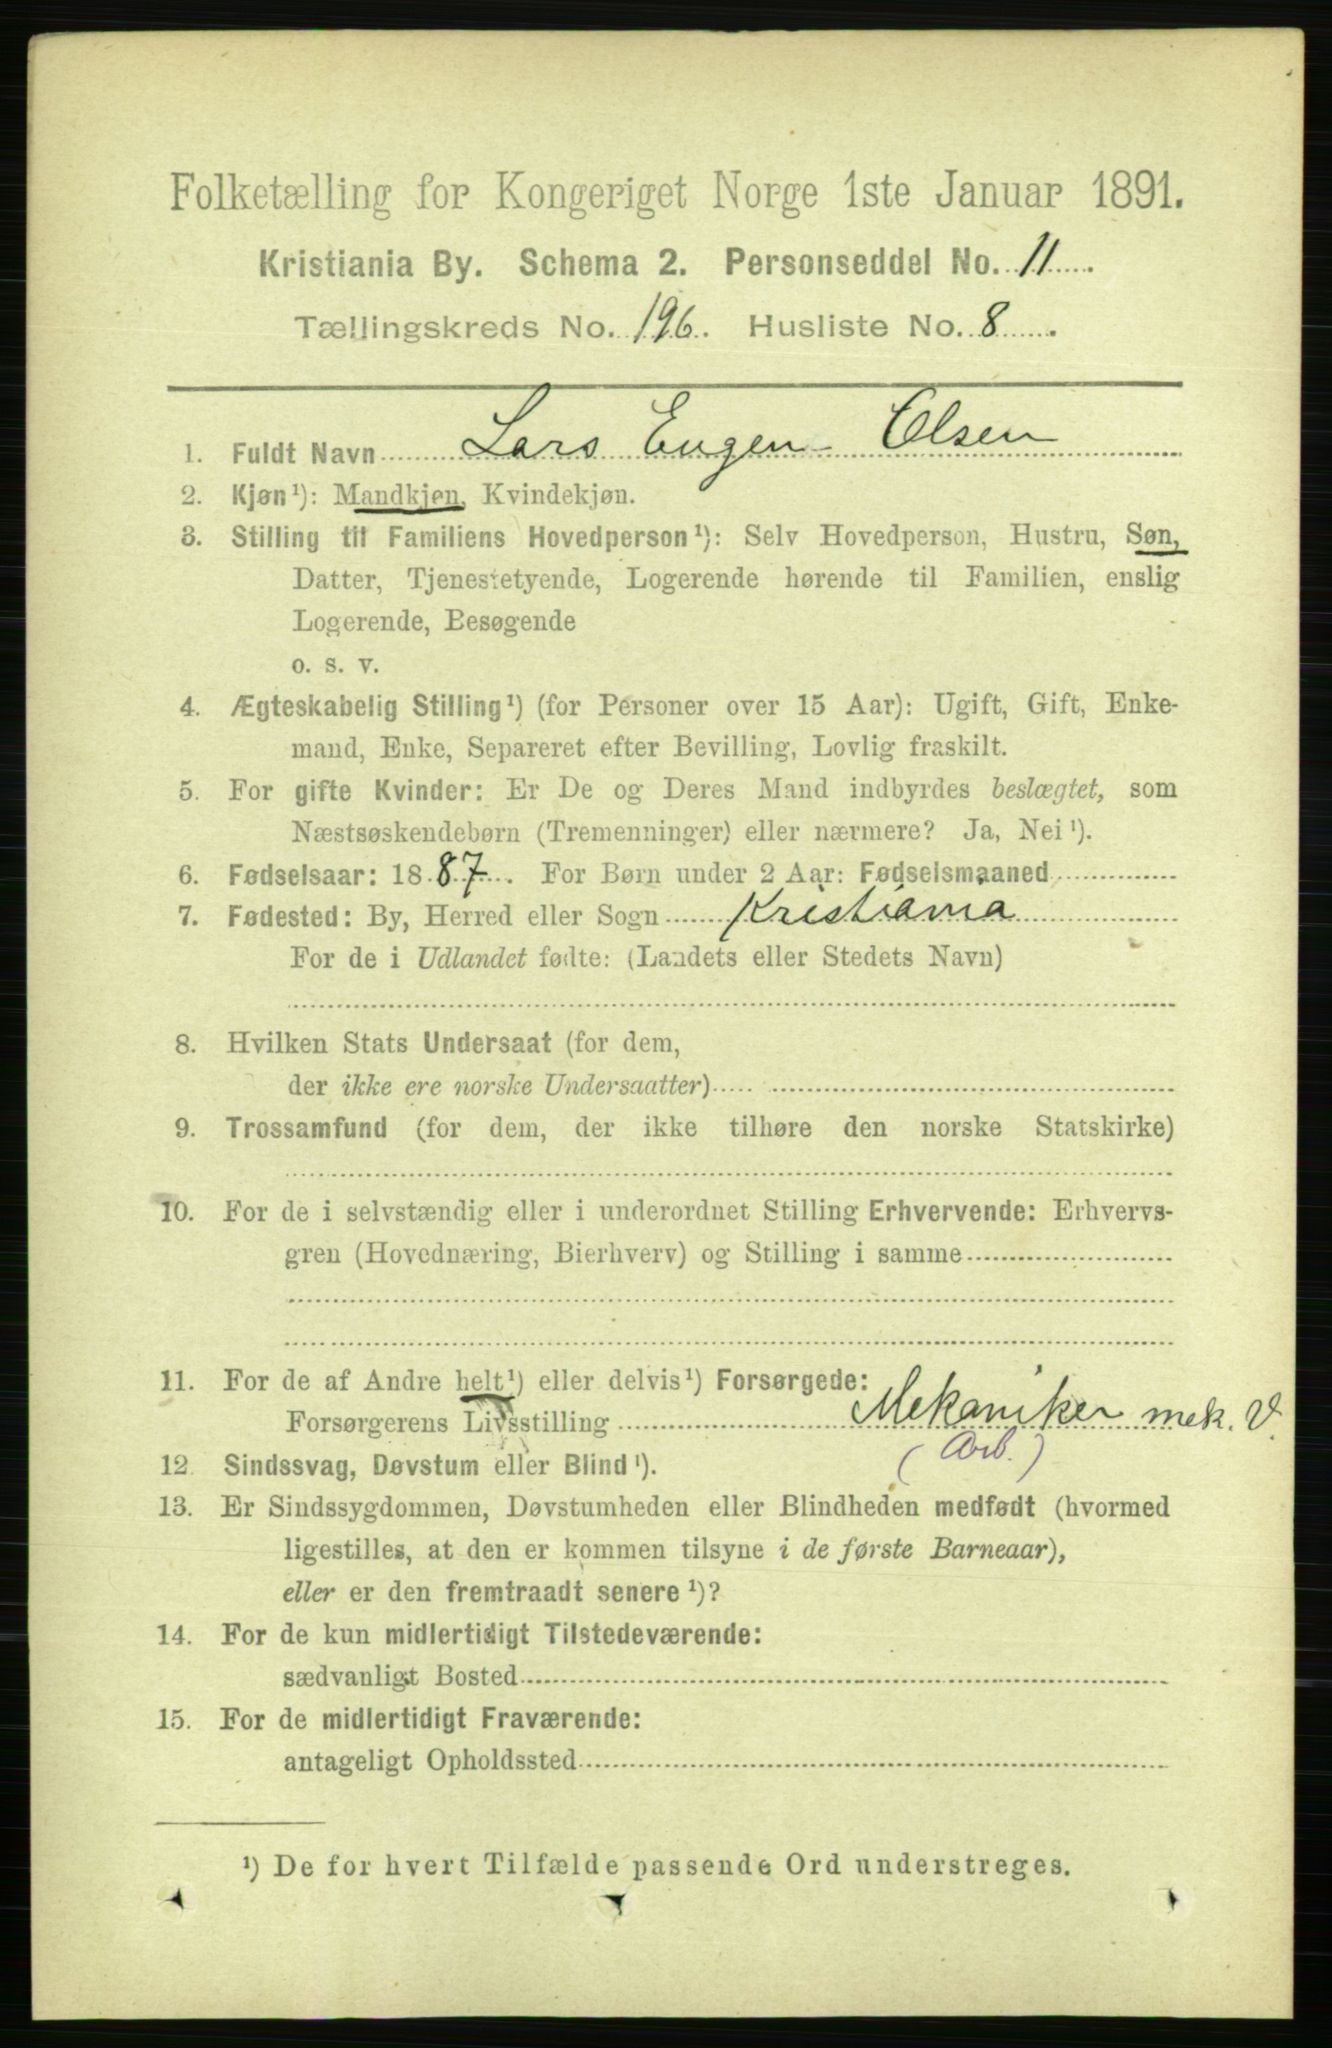 Folketælling for Kongeriget Norge 1ste Januar 1891.
Kristiania By. Schema 2. Personseddel No. 11
Tællingskreds No. 196. Husliste No. 8
1. Fuldt Navn Lars Eugen Olsen
2. Kjøn¹): Mandkjøn, Kvindekjøn.
3. Stilling til Familiens Hovedperson¹): Selv Hovedperson, Hustru, Søn,
Datter, Tjenestetyende, Logerende hørende til Familien, enslig
Logerende, Besøgende
o. s. v.
4. Ægteskabelig Stilling¹) (for Personer over 15 Aar): Ugift, Gift, Enke-
mand, Enke, Separeret efter Bevilling, Lovlig fraskilt.
5. For gifte Kvinder: Er De og Deres Mand indbyrdes beslægtet, som
Næstsøskendebørn (Tremenninger) eller nærmere? Ja, Nei¹).
6. Fødselsaar: 1887. For Børn under 2 Aar: Fødselsmaaned
7. Fødested: By, Herred eller Sogn Kristiania
For de i Udlandet fødte: (Landets eller Stedets Navn)
8. Hvilken Stats Undersaat (for dem,
der ikke ere norske Undersaatter)
9. Trossamfund (for dem, der ikke tilhøre den norske Statskirke)
10. For de i selvstændig eller i underordnet Stilling Erhvervende: Erhvervs-
gren (Hovednæring, Bierhverv) og Stilling i samme
11. For de af Andre helt¹) eller delvis¹) Forsørgede:
Forsørgerens Livsstilling Mekaniker mek. V.
(Arb.)
12. Sindssvag, Døvstum eller Blind¹).
13. Er Sindssygdommen, Døvstumheden eller Blindheden medfødt (hvormed
ligestilles, at den er kommen tilsyne i de første Barneaar),
eller er den fremtraadt senere¹)?
14. For de kun midlertidigt Tilstedeværende:
sædvanligt Bosted
15. For de midlertidigt Fraværende:
antageligt Opholdssted
¹) De for hvert Tilfælde passende Ord understreges.